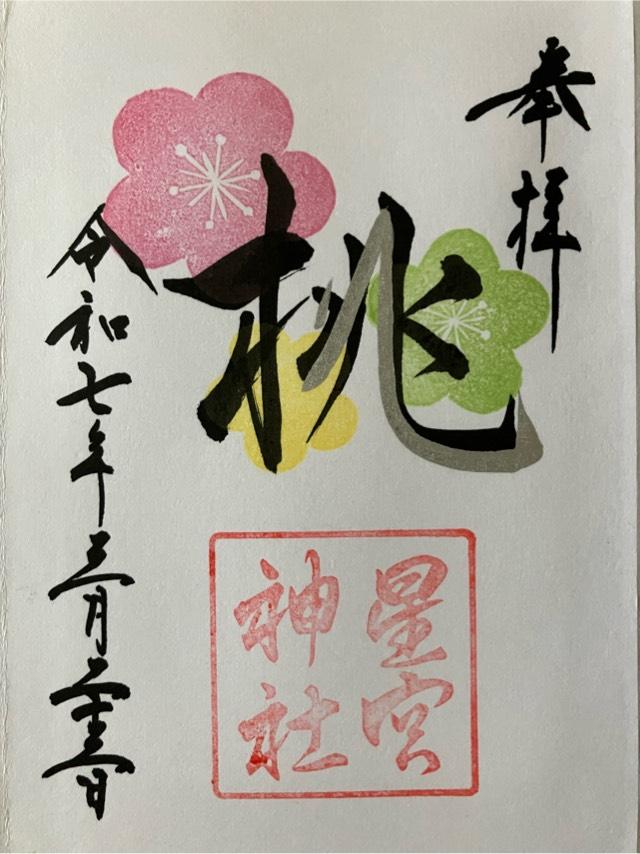 奉拝
桃
星宮
神社
令和七年三月二十三日